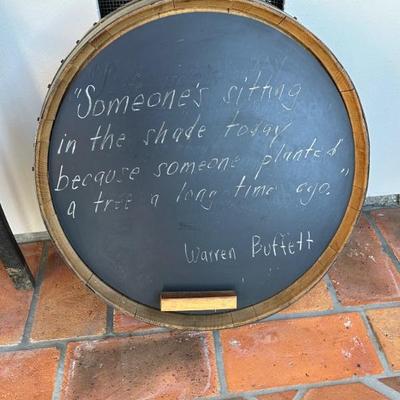 "Someone's sitting
in the shade today
because someone planted
a tree a long time ago."
Warren Buffett